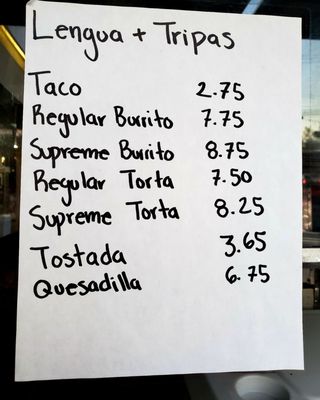 Lengua + Tripas
Taco 2.75
Regular Burrito 7.75
Supreme Burrito 8.75
Regular Torta 7.50
Supreme Torta 8.25
Tostada 3.65
Quesadilla 6.75